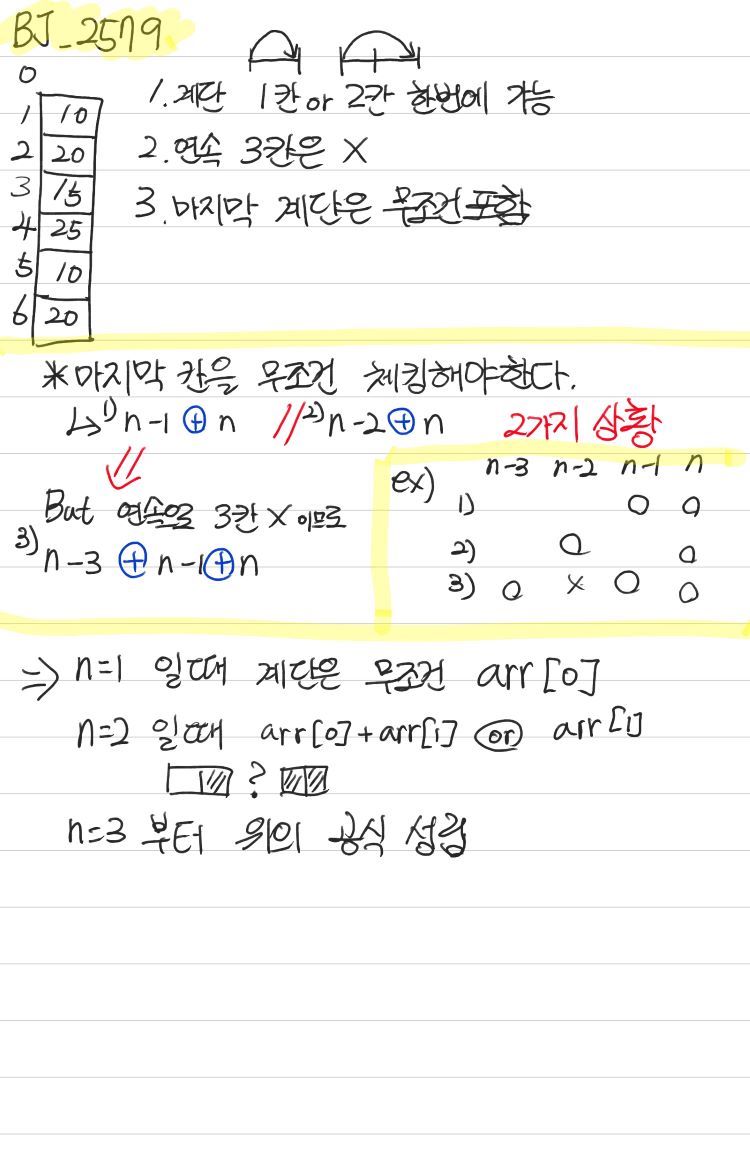 BJ_2579
0
1 10
2 20
3 15
4 25
5 10
6 20
1. 계단 1칸 or 2칸 한번에 가능
2. 연속 3칸은 X
3. 마지막 계단은 무조건 포함
*마지막 칸을 무조건 체킹해야한다.
↳ 1) n-1 ⊕ n // 2) n-2 ⊕ n 2가지 상황
But 연속으로 3칸 X 이므로
3) n-3 ⊕ n-1 ⊕ n
ex) n-3 n-2 n-1 n
1) O O
2) O O
3) O X O O
⇒ n=1 일때 계단은 무조건 arr[0]
n=2 일때 arr[0]+arr[1] or arr[1]
?
n=3 부터 위의 공식 성립